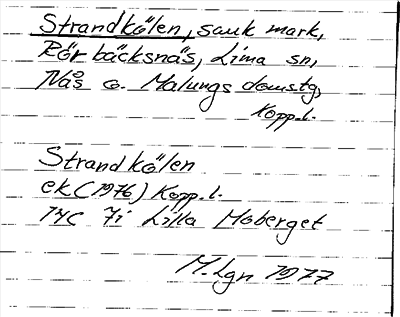 Strandkölen, sank mark,
Rörbäcksnäs, Lima sn,
Nås o. Malungs domstg,
Kopp.l.
Strandkölen
ek (1976) Kopp.l.
14C 7i Lilla Moberget
M.Lgn 1977